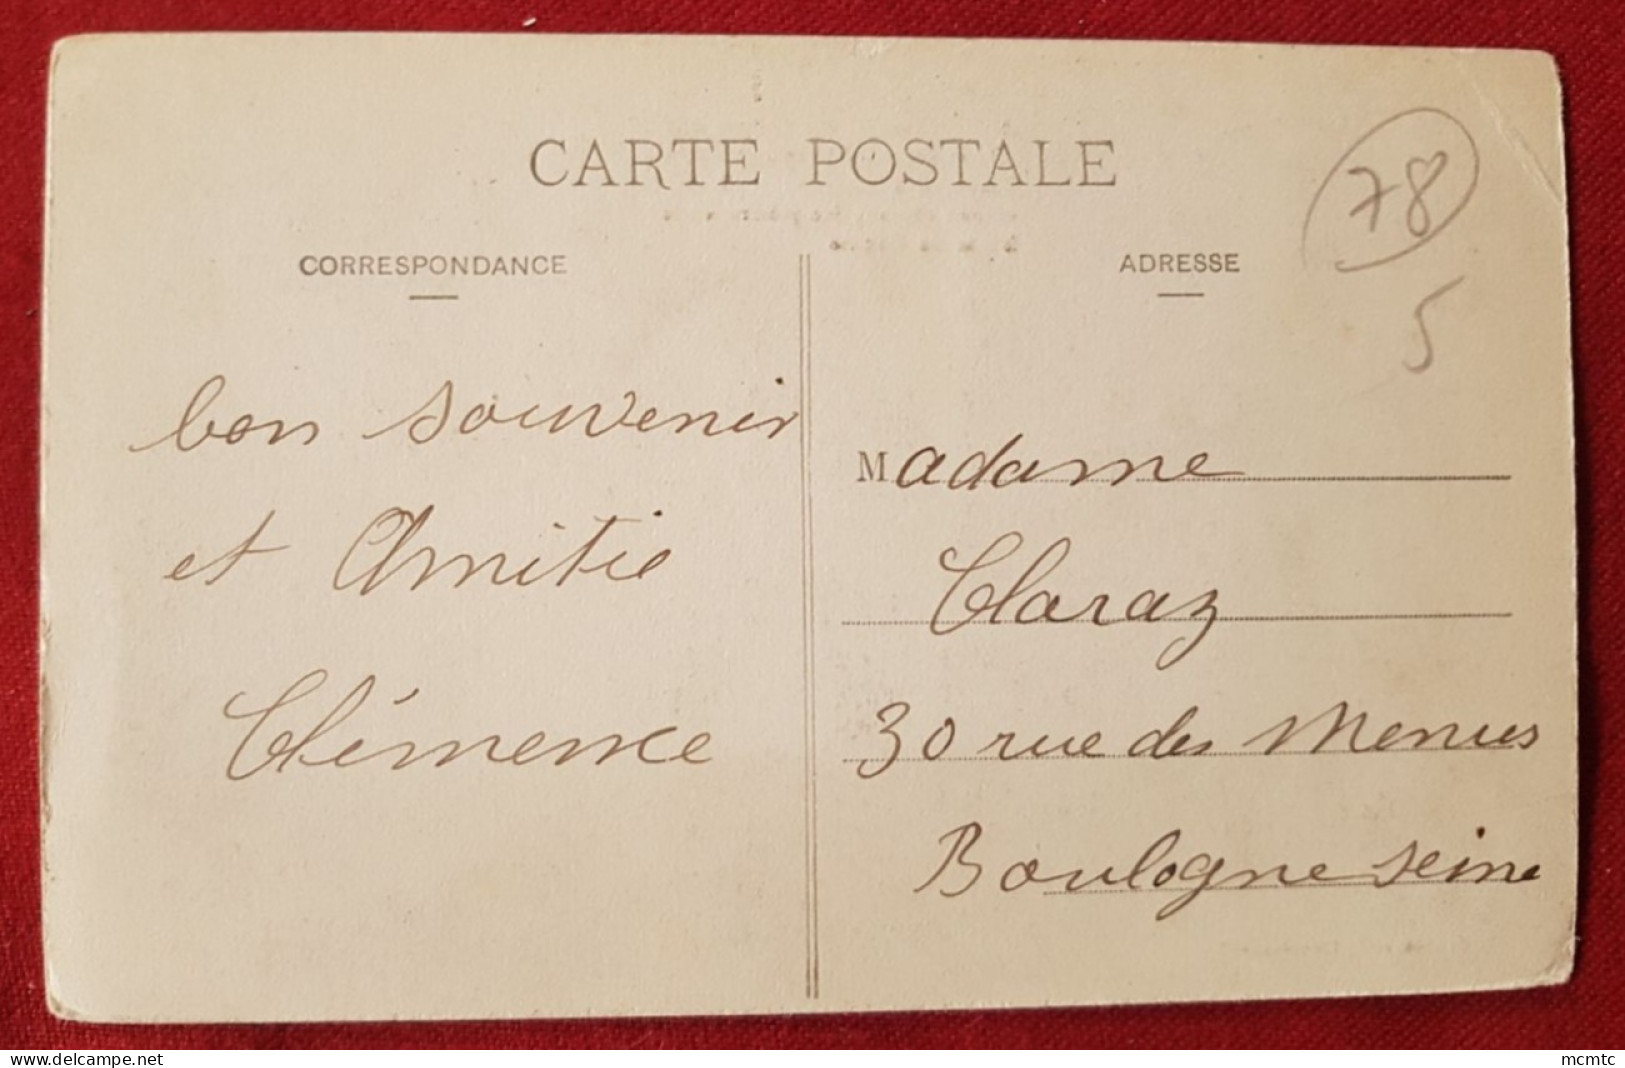 CARTE POSTALE
78
CORRESPONDANCE
ADRESSE
5
bon souvenir
et Amitié
Clémence
Madame
Claraz
30 rue des Menus
Boulogne Seine
www.delcampe.net
mcmtc